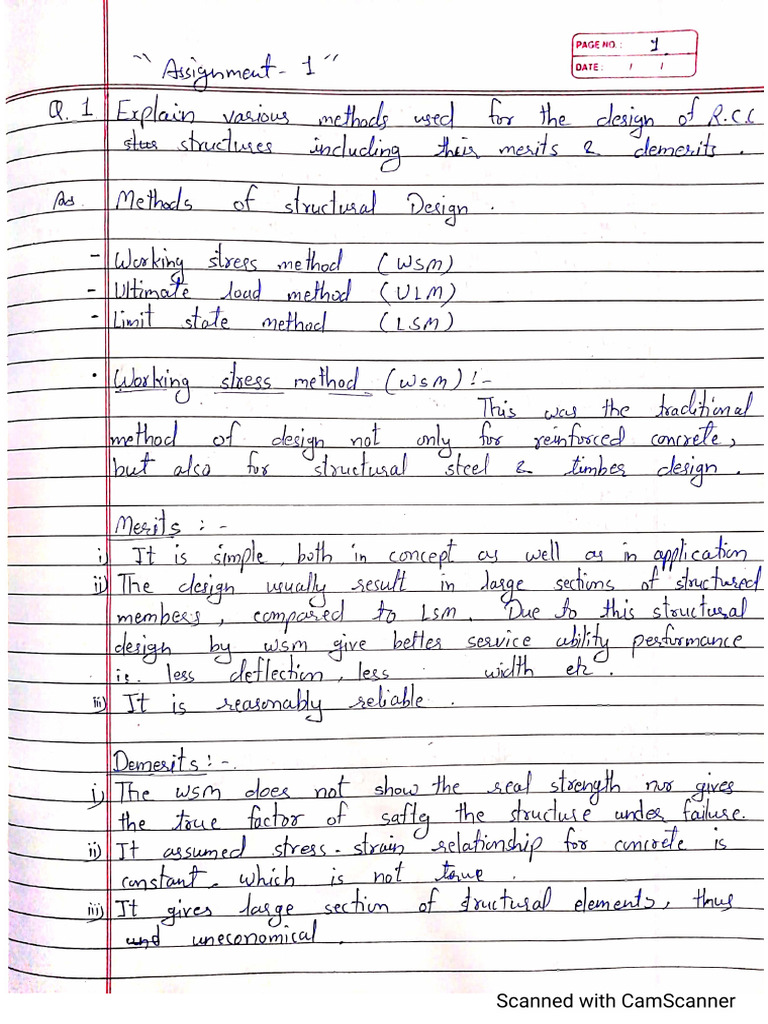 PAGE NO.: 1
DATE: / /
"Assignment - 1"
Q. 1 Explain various methods used for the design of R.C.C
structures including their merits & demerits.
Methods of structural Design.
- Working stress method (WSM)
- Ultimate load method (ULM)
- Limit state method (LSM)
• Working stress method (WSM) :-
This was the traditional
method of design not only for reinforced concrete,
but also for structural steel & timber design.
Merits :-
i) It is simple, both in concept as well as in application
ii) The design usually result in large sections of structured
members, compared to LSM. Due to this structural
design by WSM give better service ability performance
ie. less deflection, less width etc.
iii) It is reasonably reliable.
Demerits :-
i) The WSM does not show the real strength nor gives
the true factor of safty the structure under failure.
ii) It assumed stress-strain relationship for concrete is
constant, which is not true.
iii) It gives large section of structural elements, thus
uneconomical.
Scanned with CamScanner